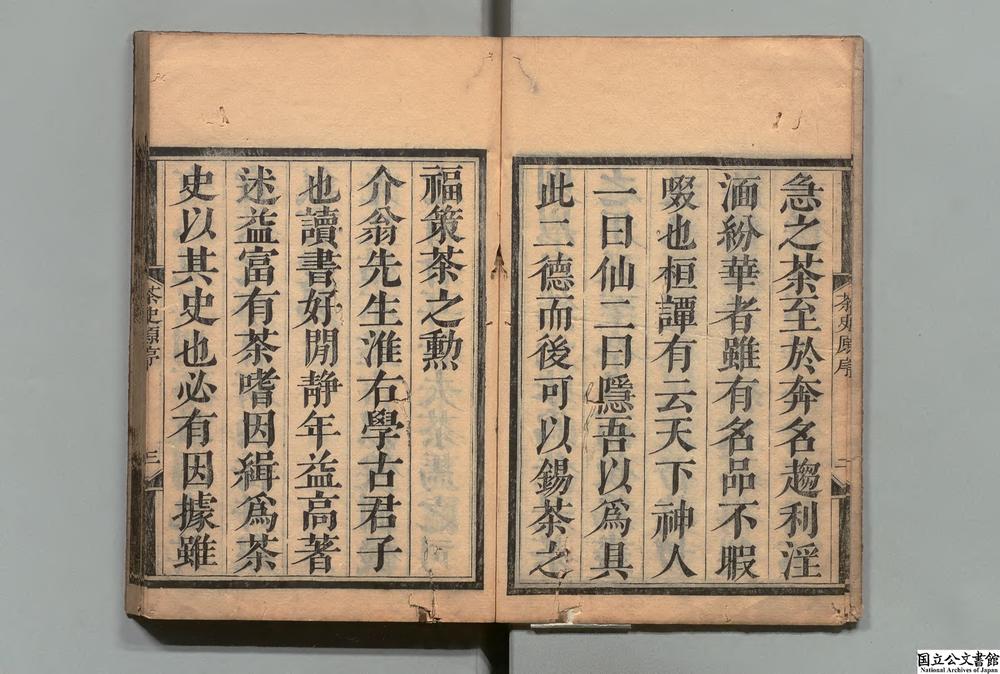 急之茶至於奔名趨利淫
湎紛華者雖有名品不暇
啜也桓譚有云天下神人
一曰仙二曰隱吾以爲具
此二德而後可以錫茶之
福策茶之勲
介翁先生淮右學古君子
也讀書好閒静年益高著
述益富有茶嗜因緝爲茶
史以其史也必有因據雖
茶史
三
国立公文書館
National Archives of Japan